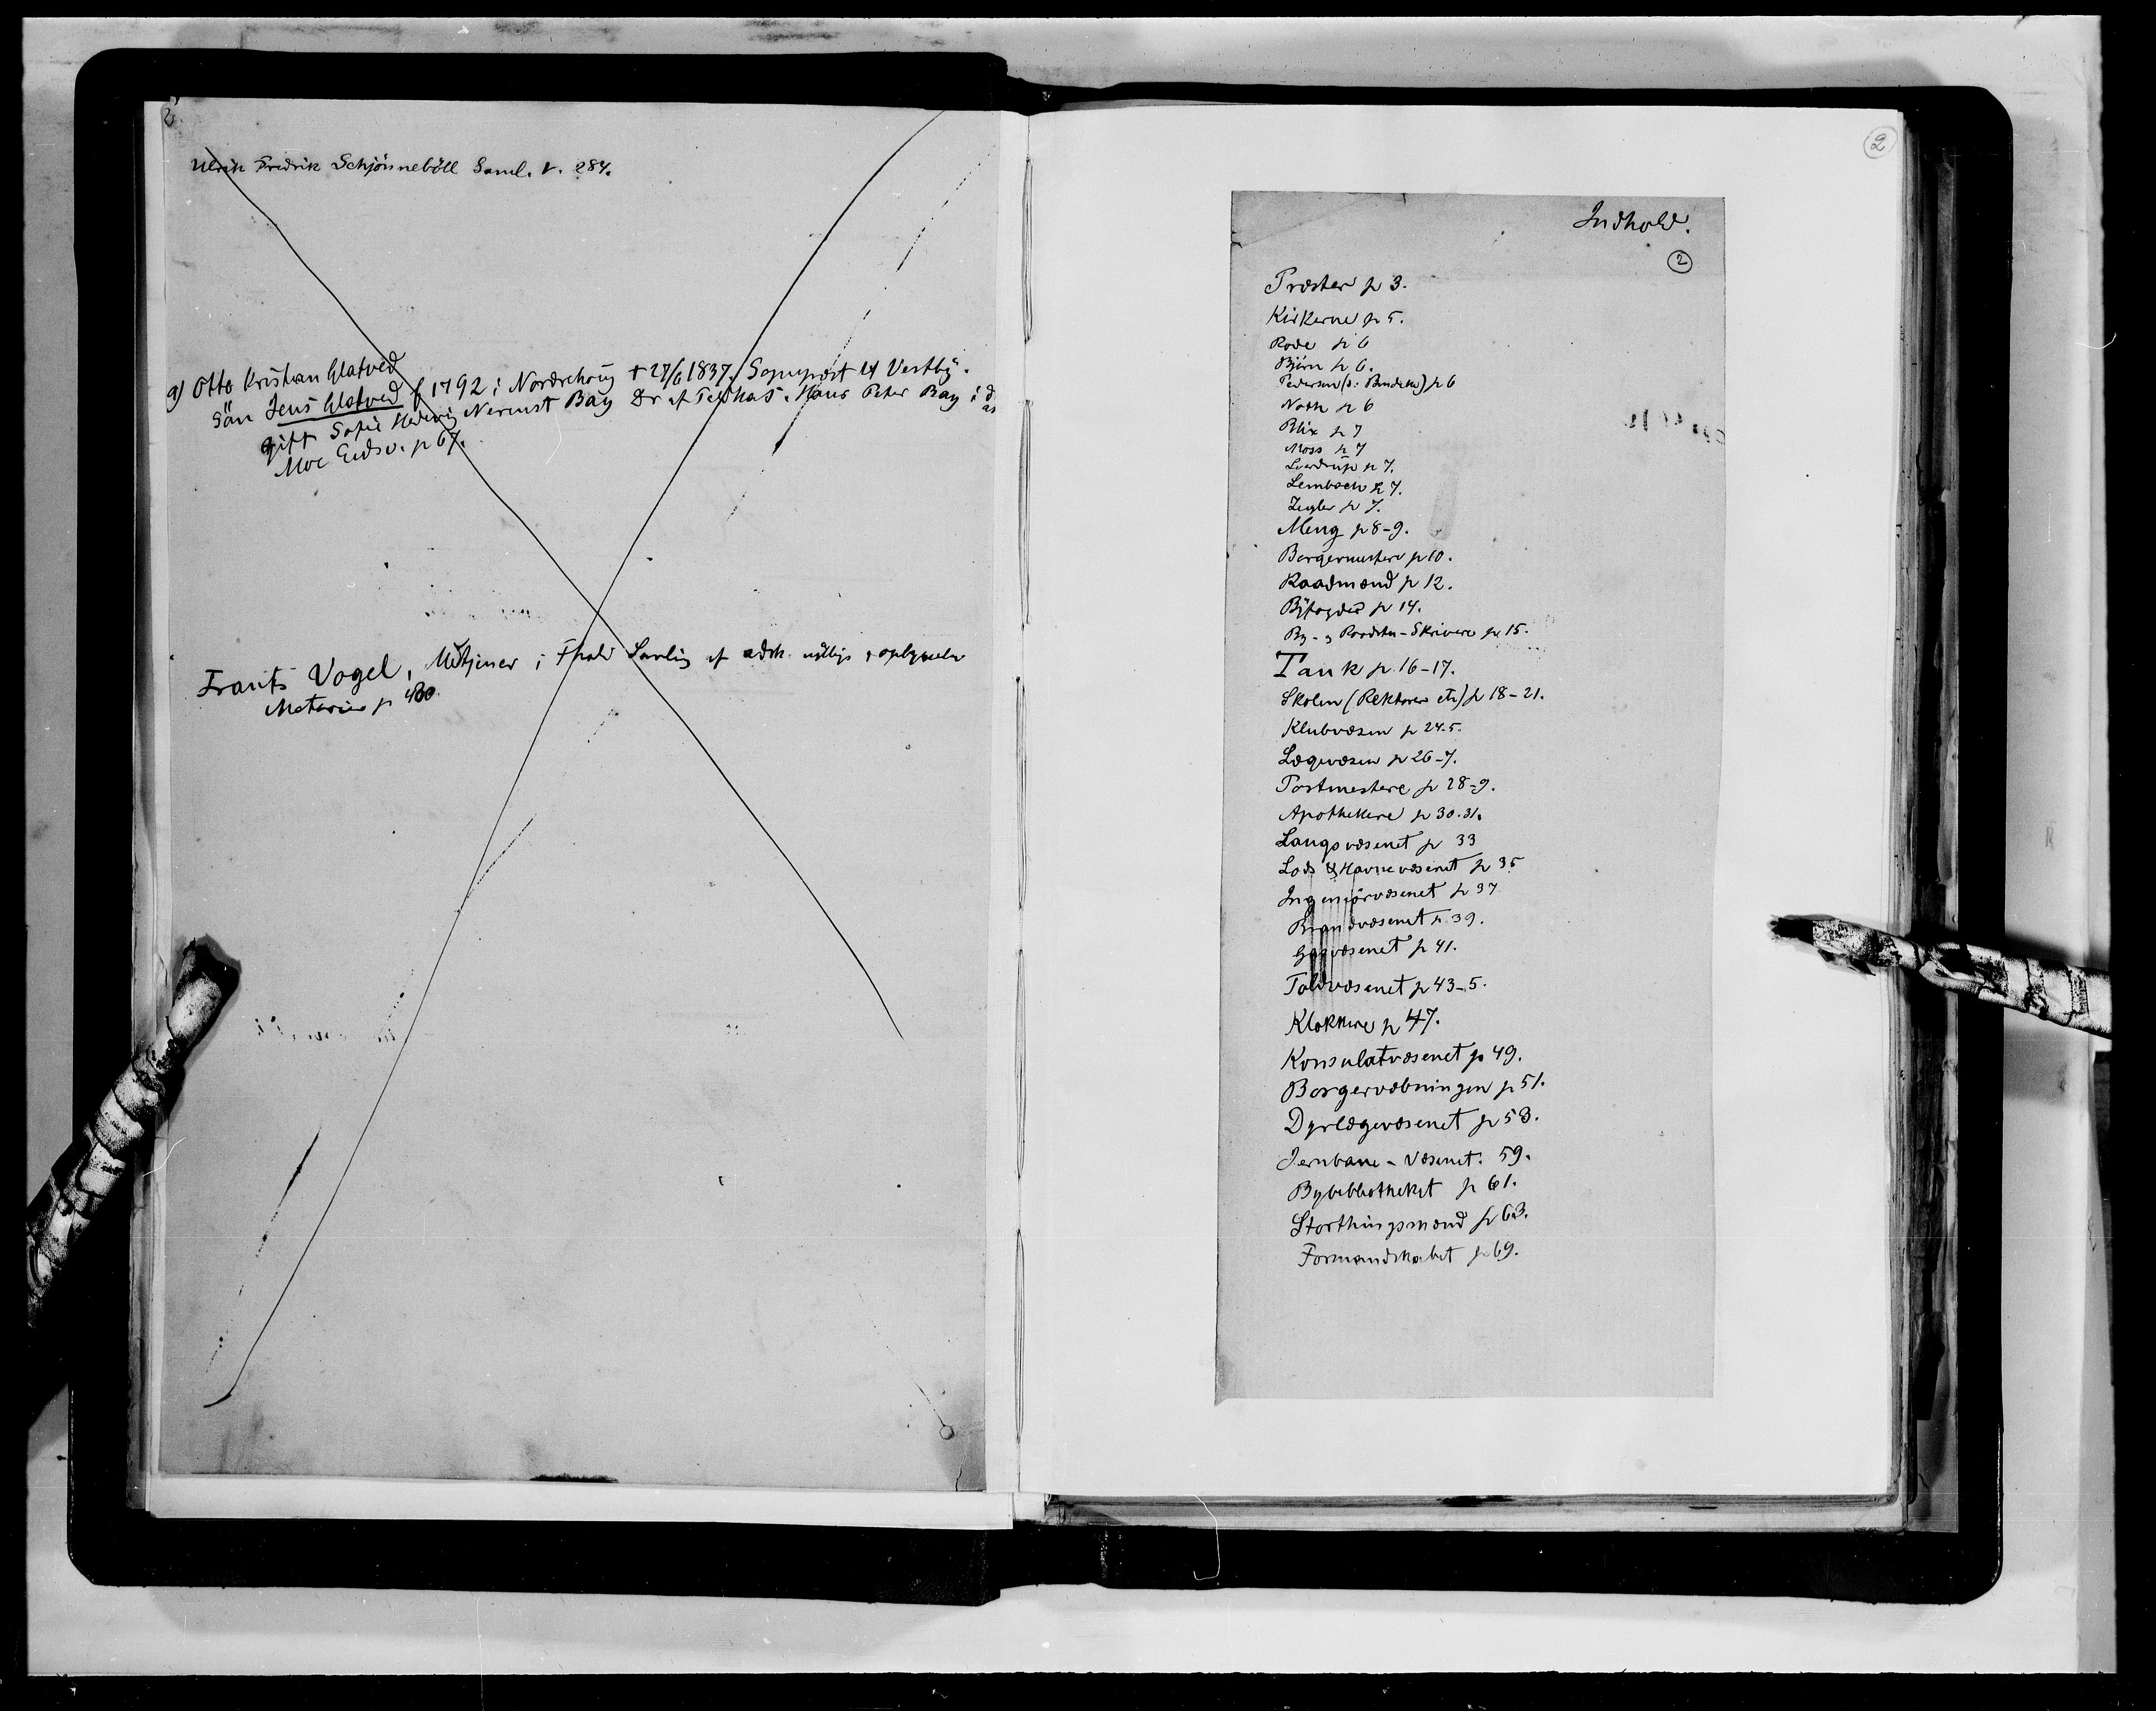 Ulrik Fredrik Schjönneböll Saml. V. 284.
a) Otto Kristian Glatved
Sön Jens Glatved f 1792 i Norderhoug † 27/6 1837. Sognepræst til Vestby.
gift Sofie Hedevig Bay Dr af Hans Peter Bay i
Moe Eidsv. p 67.
Frants Vogel, i Thals Samling af
p 480
2
Indhold.
2
Præster p 3.
Kirkerne p 5.
Rode p 6
Björn p 6.
Pedersen p 6
p 6
Blix p 7
Moss p 7
p 7.
Lembach p 7.
Zegler p 7.
Meng p 8-9.
Borgermestere p 10.
Raadmænd p 12.
Byfogder p 14.
By- og Raadstu-Skrivere p 15.
Tank p. 16-17.
Skolen (Rektorer etc) p 18-21.
Klubvæsen p 24-5.
Lægevæsen p 26-7.
Postmestere p 28-9.
Apothekere p 30.31.
Laugsvæsenet p 33
Lods & Havnevæsenet p 35
Ingeniörvæsenet p 37
Brandvæsenet p. 39.
Gasvæsenet p 41.
Toldvæsenet p 43-5.
Klokkere p 47.
Konsulatvæsenet p 49.
Borgervæbningen p 51.
Dyrlægevæsenet p 53.
Jernbane-væsenet. 59.
Bybibliotheket p 61.
Storthingsmænd p 63.
Formandskabet p 69.